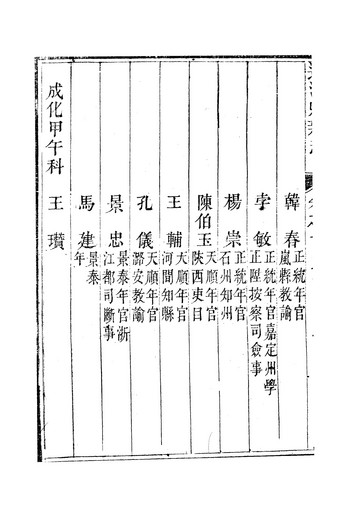 韓春 正統年官嵐縣教諭
李敏 正統年官嘉定州學正陞按察司僉事
楊崇 正統年官石州知州
陳伯玉 天順年官陝西吏目
王輔 天順年官河間知縣
孔儀 天順年官潞安教諭
景忠 景泰年官浙江都司斷事
馬建 景泰年
成化甲午科
王瓚